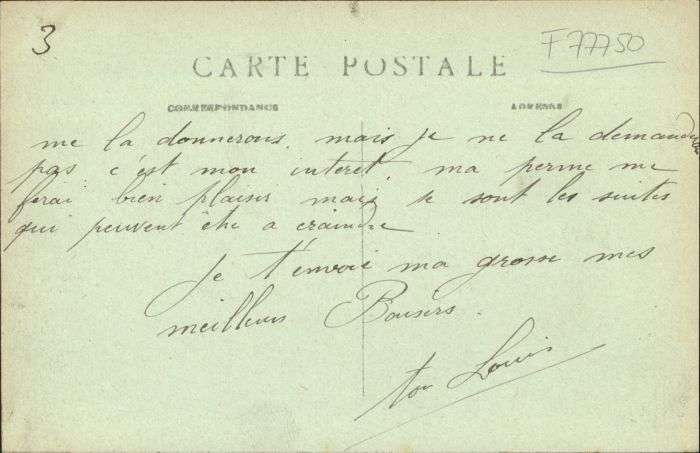 3
F 77750
CARTE POSTALE
CORRESPONDANCE
ADRESSE
me la donnerons, mais je ne la demande
pas c'est mon interet, ma perme me
ferai bien plaisir mais se sont les suites
qui peuvent être a craindre
Je t'envoie ma grosse mes
meilleurs Baisers.
ton Louis